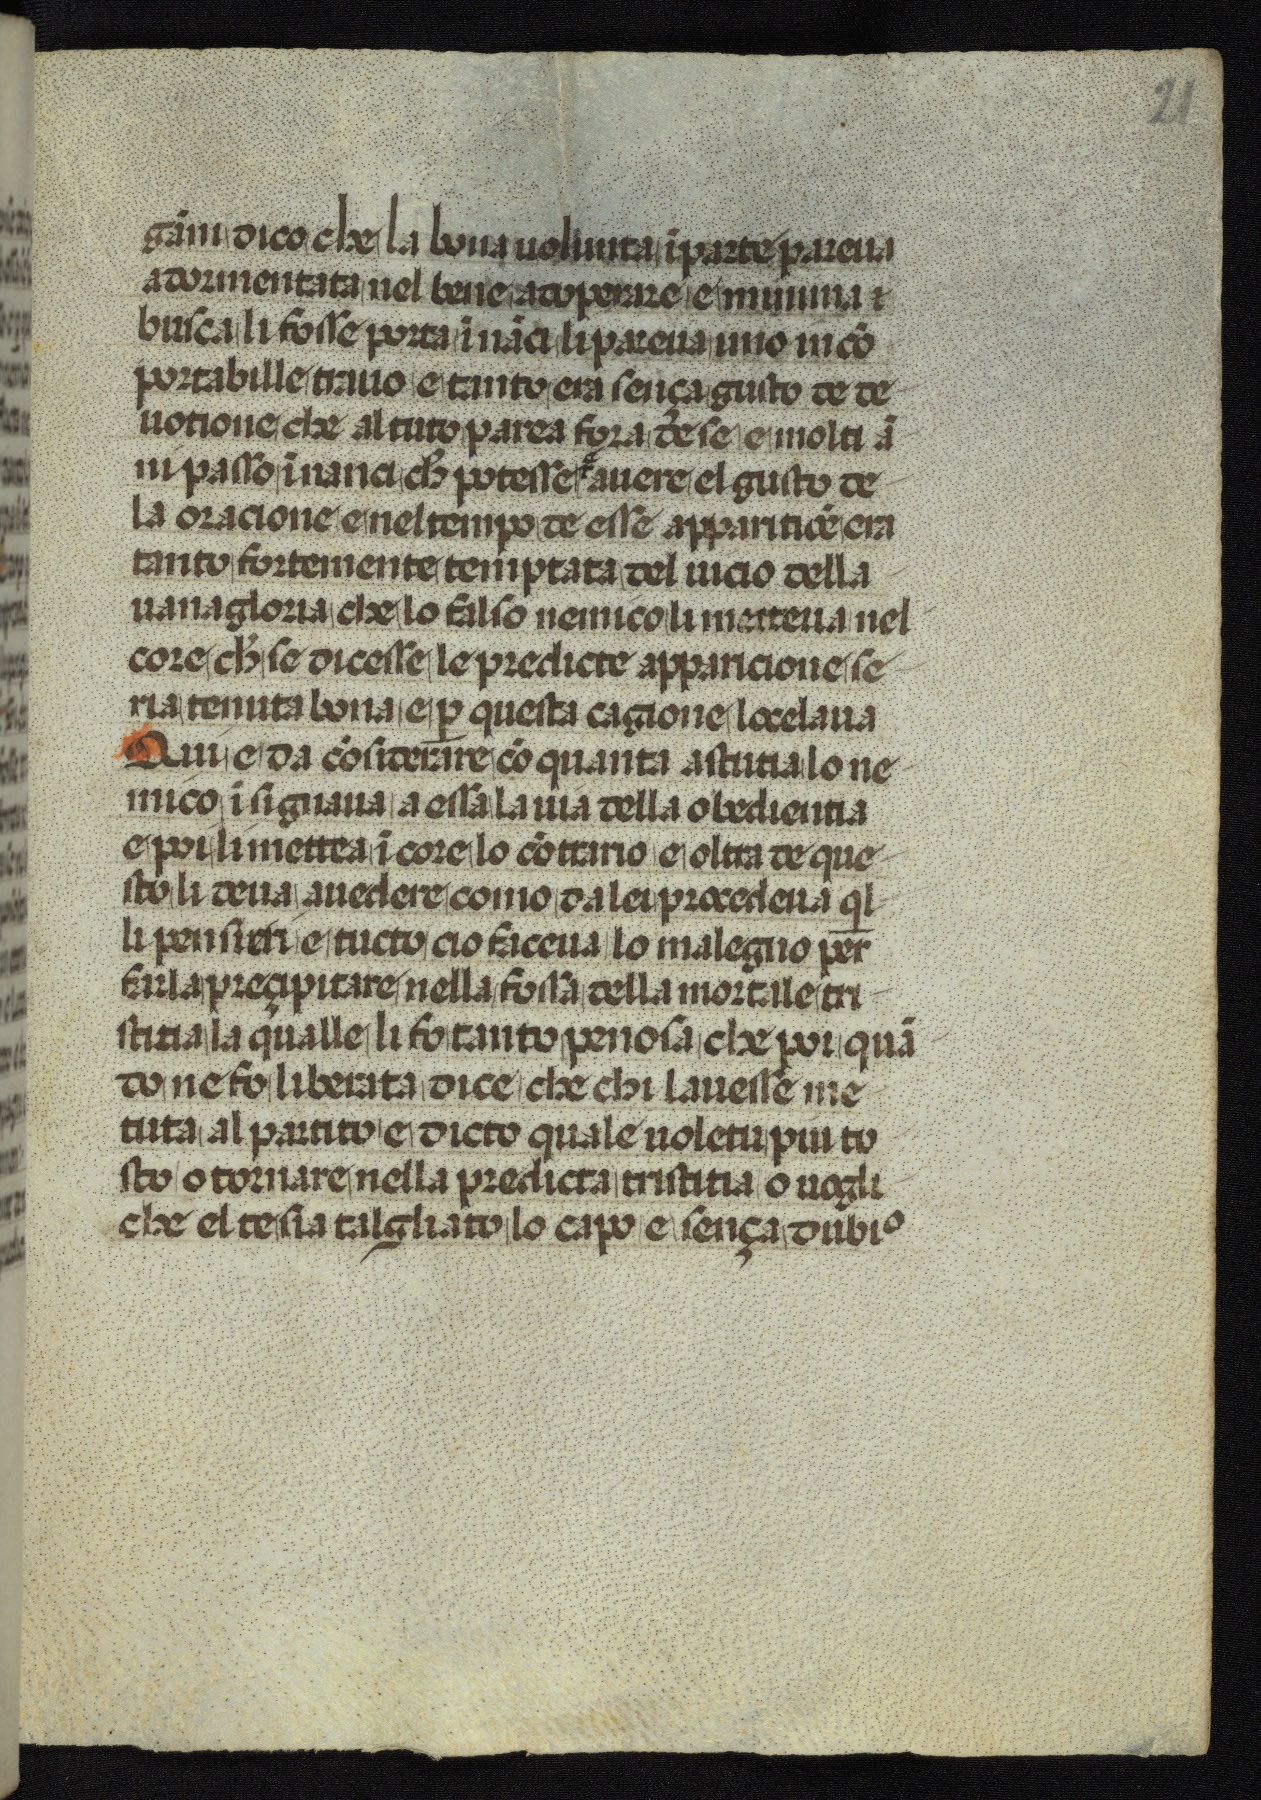 21
gāni dico che la bona uolunta ī parte pareua
adormentata nel bene adoperare e minima ⁊
busca li fosse porta ī nāci li pareua uno incō
portabille trauo e tanto era sença gusto de de
uotione che al tuto parea fora de se e molti ā
ni passo īnanci ch̄ potesse auere el gusto de
la oracione e nel tempo de esse apparitiōe era
tanto fortemente temptata del uicio della
uanagloria che lo falso nemico li metteua nel
core ch̄ se dicesse le predicte apparicione se
ria tenuta bona e ꝑ questa cagione locelaua
Qui e da cōsiderare cō quanta astutia lo ne
mico īsignaua a essa la uia della obedientia
e poi li mettea ī core lo cōttario e oltra de que
sto li deua auedere como da lei procedeua q̄l
li pensieri e tucto cio faceua lo malegno per
farla preçipitare nella fossa della mortale tri
stitia la qualle li fo tanto penosa che poi quā
do ne fo liberata dice che chi lauesse me
tuta al partito e dicto quale uoletu piu to
sto o tornare nella predicta tristitia o uogli
che el te sia talgliato lo capo e sença dubio